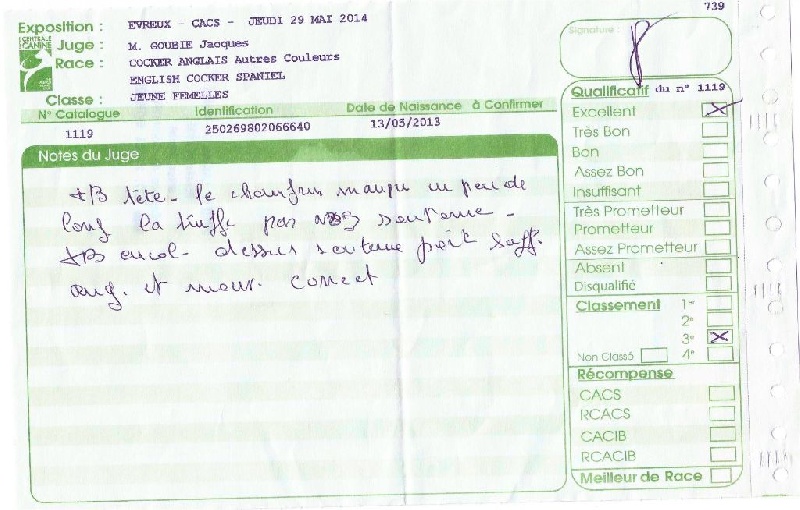 739
Exposition : EVREUX - CACS - JEUDI 29 MAI 2014
CENTRALE CANINE
Juge : M. GOUBIE Jacques
Race : COCKER ANGLAIS Autres Couleurs
ENGLISH COCKER SPANIEL
Classe : JEUNE FEMELLES
N° Catalogue Identification Date de Naissance à Confirmer
1119 250269802066640 13/03/2013
Notes du Juge
tB tête - le chanfrein manque un peu de
long la truffe pas assez soutenue -
tB encol - dessus soutenu poit suff.
ang. et mouv. correct
Signature :
Qualificatif du n° 1119
Excellent
Très Bon
Bon
Assez Bon
Insuffisant
Très Prometteur
Prometteur
Assez Prometteur
Absent
Disqualifié
Classement 1er
2e
3e
Non Classé 4e
Récompense
CACS
RCACS
CACIB
RCACIB
Meilleur de Race